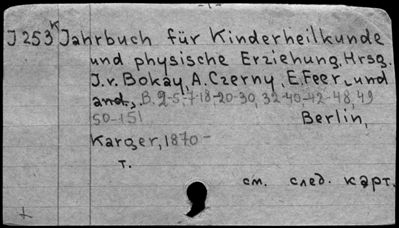 - 1 -
J 253 K Jahrbuch für Kinderheilkunde
und physische Erziehung. Hrsg.
J.v. Bokay, A. Czerny, E. Feer, und
and., B. 2-5-7-18,-20-30, 32-40,-42-48, 49
50-151 Berlin,
Karger, 1870 -
т.
см. след. карт.